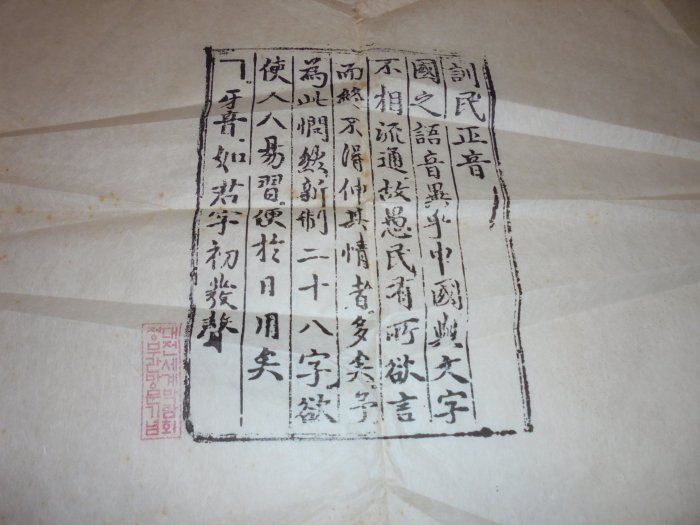 訓民正音
國之語音異乎中國與文字
不相流通故愚民有所欲言
而終不得伸其情者多矣予
為此憫然新制二十八字欲
使人人易習便於日用矣
ㄱ牙音如君字初發聲
대전세계박람회
정부관방문기념